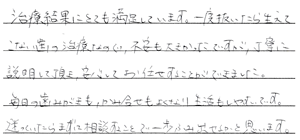 治療結果にとても満足しています。一度抜いたら生えて
こない歯の治療なので、不安も大きかったですが、丁寧に
説明して頂き、安心してお任せすることができました。
毎日の歯みがきも、かみ合せもよくなり生活もしやすいです。
迷っていたらまずは相談することで一歩ふみ出せるかと思います。